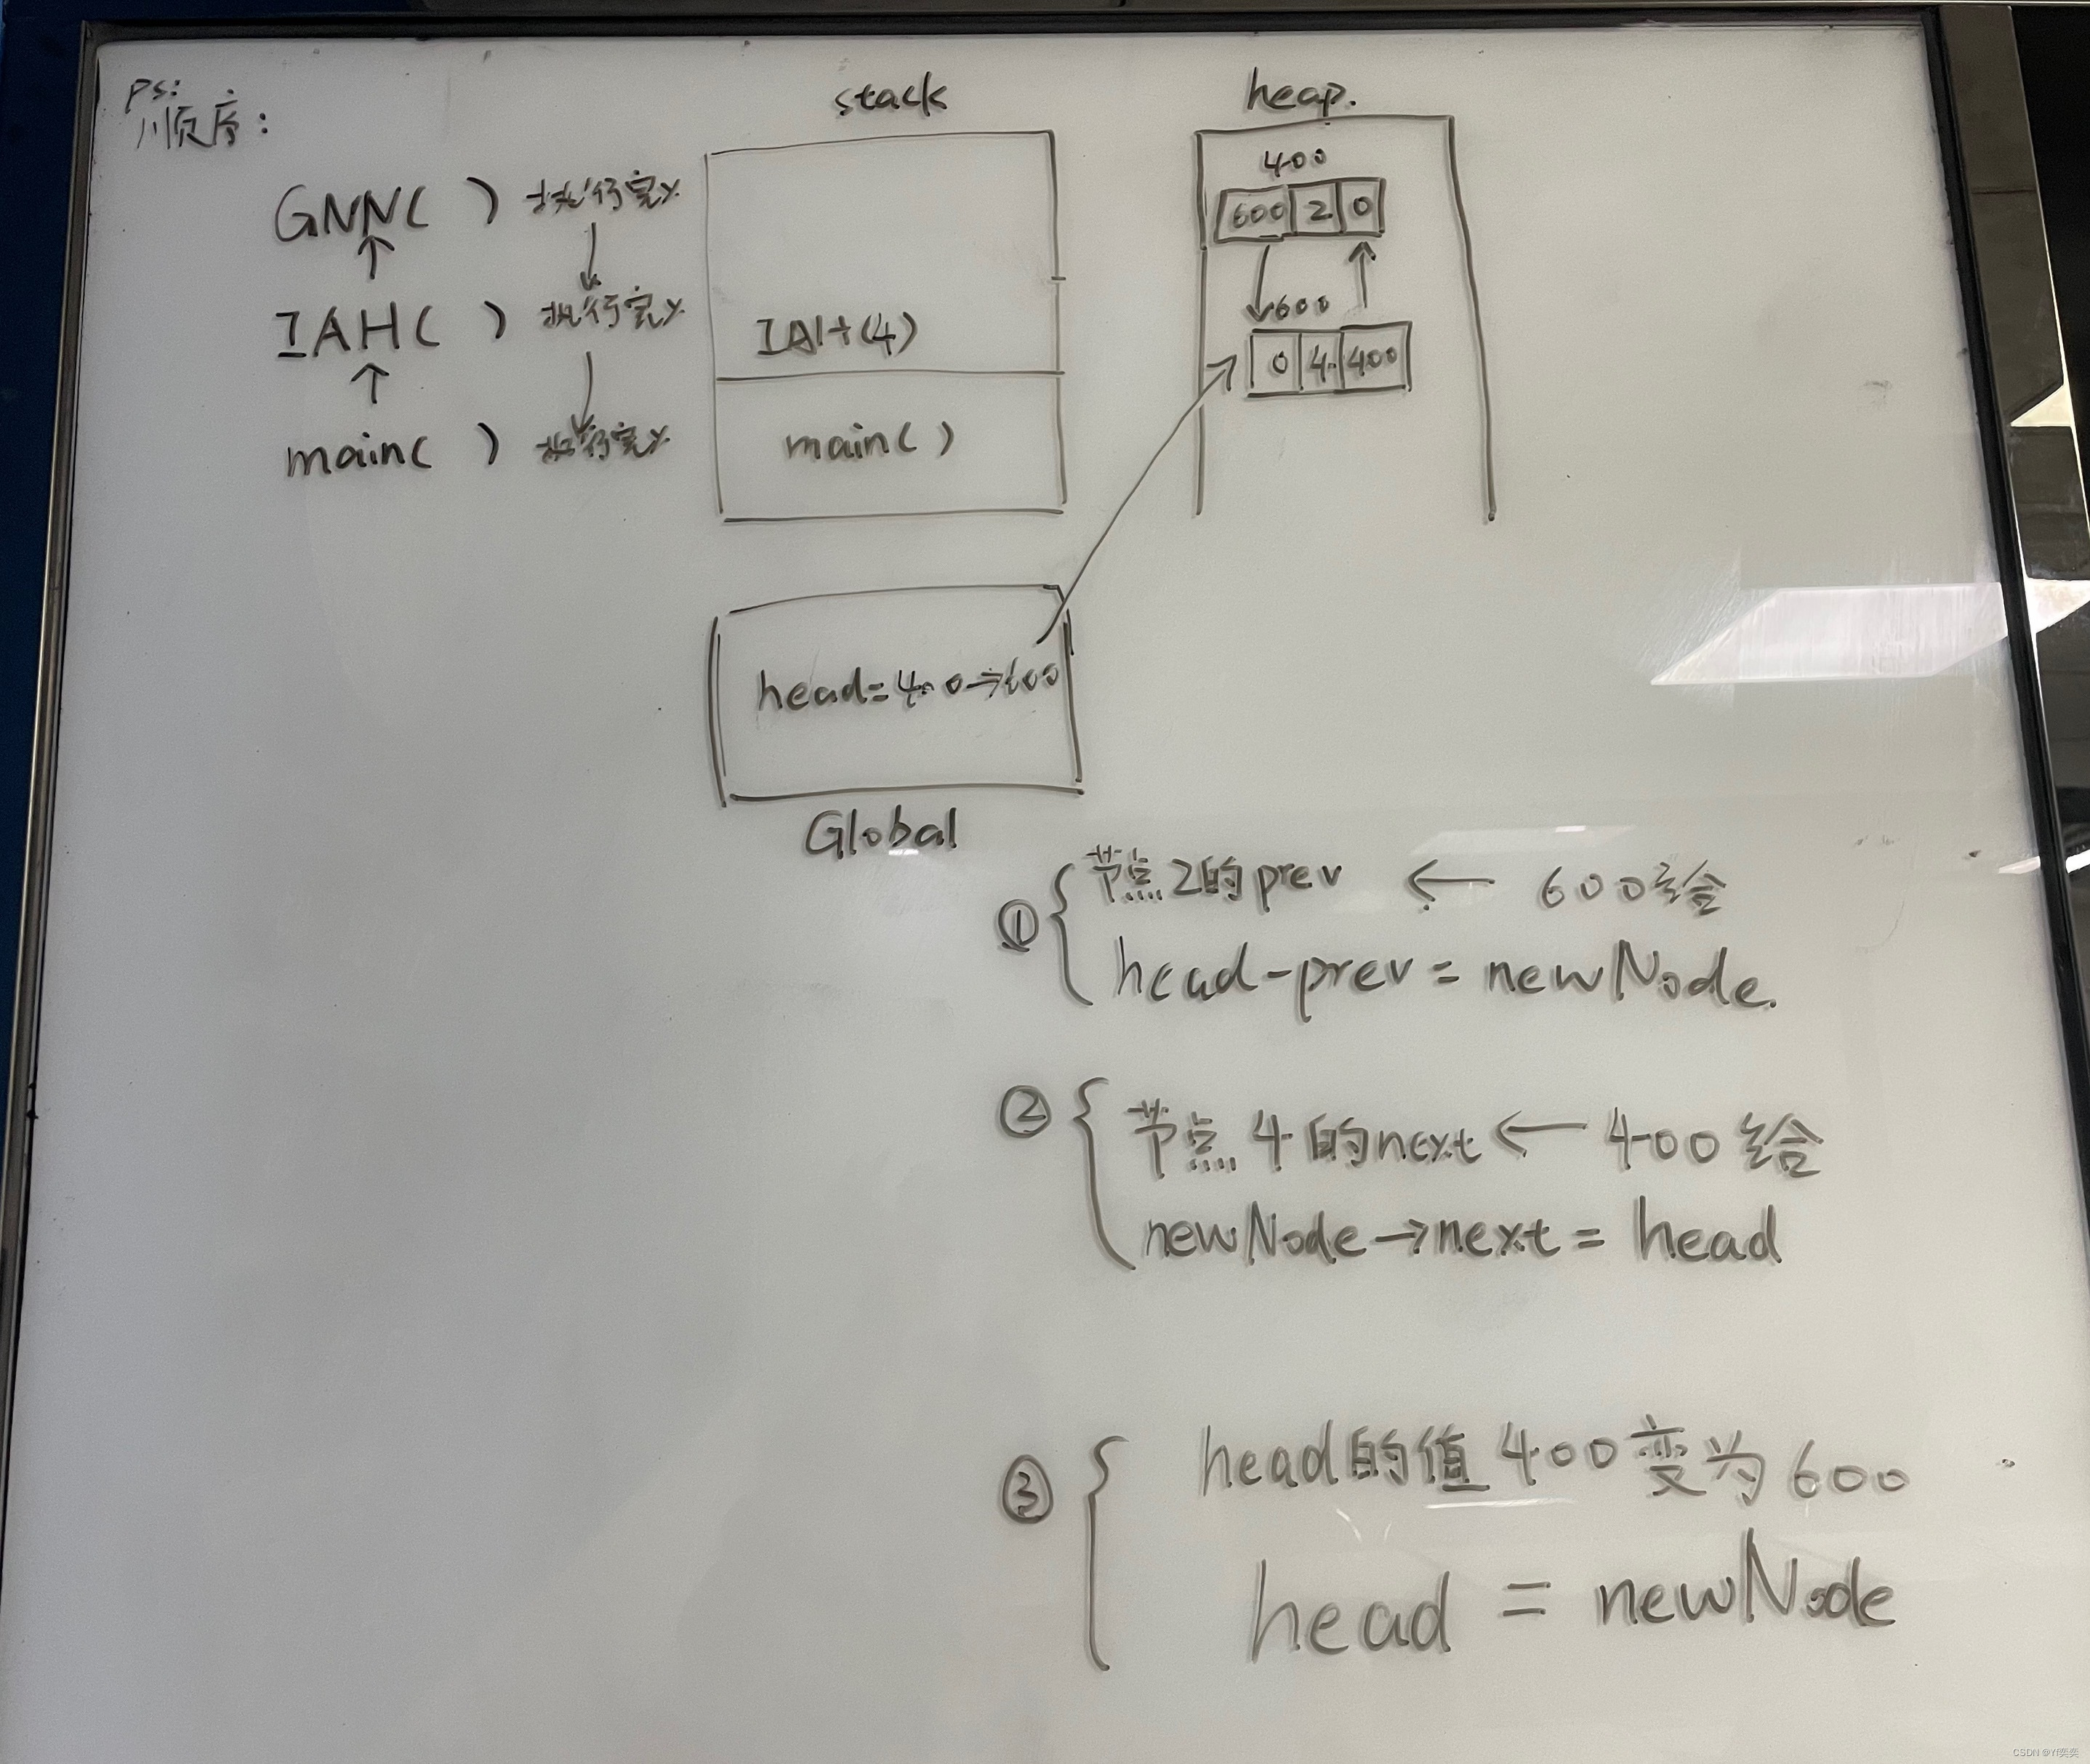 ps:
顺序：
GNN( ) 执行完
IAH( ) 执行完
main( ) 执行完
stack
IAH(4)
main( )
heap.
400
600 2 0
600
0 4 400
head=400→600
Global
① 节点2的prev ← 600给
head-prev = newNode.
② 节点4的next ← 400给
newNode→next = head
③ head的值400变为600
head = newNode
CSDN @Yf奕奕